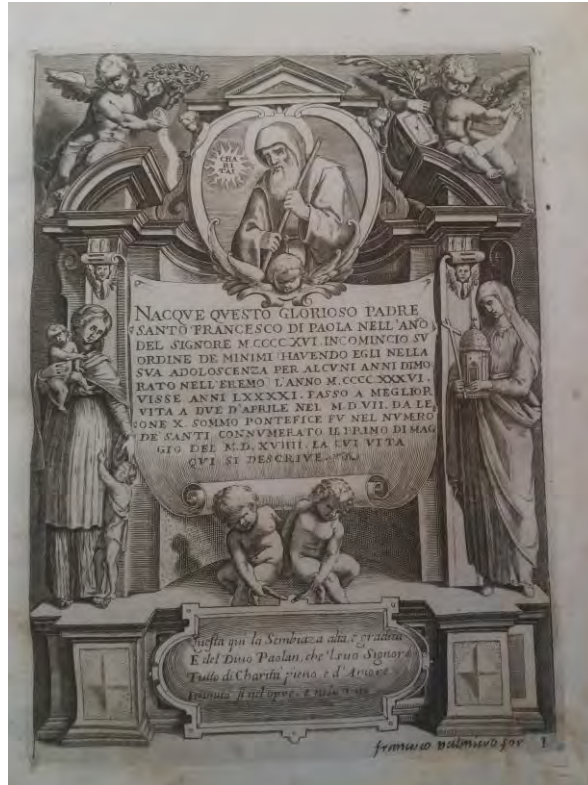 CHA
RI
TAS
NACQVE QVESTO GLORIOSO PADRE
SANTO FRANCESCO DI PAOLA NELL'ANO
DEL SIGNORE M CCCC XVI. INCOMINCIO SV
ORDINE DE MINIMI HAVENDO EGLI NELLA
SVA ADOLOSCENZA PER ALCVNI ANNI DIMO
RATO NELL'EREMO L'ANNO M. CCCC. XXXVI.
VISSE ANNI LXXXXI. PASSO A MEGLIOR
VITA A DVE D'APRILE NEL M.D.VII. DA LE
ONE X. SOMMO PONTEFICE FV NEL NVMERO
DE' SANTI CONNVMERATO IL PRIMO DI MAG
GIO DEL M.D. XVIIII. LA CVI VITA
QVI SI DESCRIVE.
Questa qui la Sembiaza alta, e gradita
È del Diuo Paolan, che'l suo Signore
Tutto di Charità pieno, e d'Amore
francisco
1